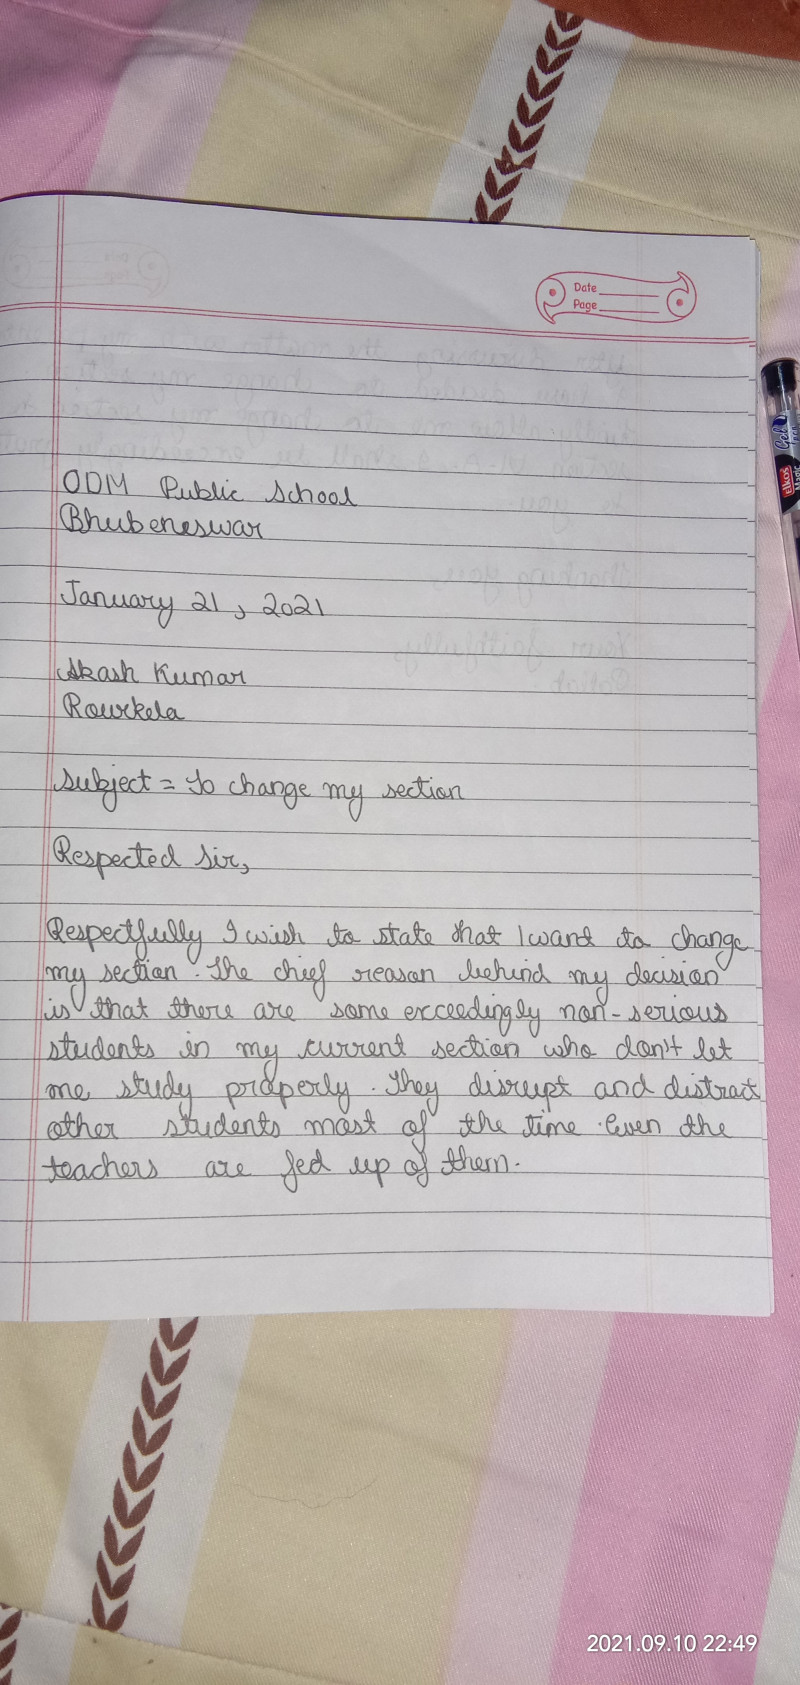 Date
Page
ODM Public School
Bhubeneswar
January 21, 2021
Akash Kumar
Rourkela
Subject = To change my section
Respected Sir,
Respectfully I wish to state that I want to change
my section. The chief reason behind my decision
is that there are some exceedingly non-serious
students in my current section who don't let
me study properly. They disrupt and distract
other students most of the time. Even the
teachers are fed up of them.
Gel
Elkos
Magic
2021.09.10 22:49